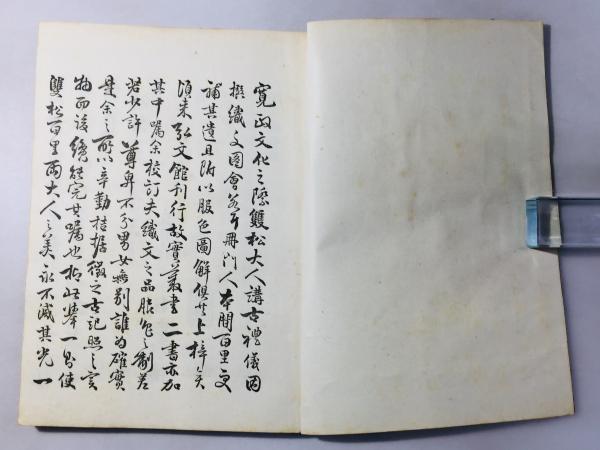 寛政文化之際雙松大人講古禮儀因
撰織文圖會若干冊門人本間百里更
補其遺且附以服色圖解倶上梓矣
頃来弘文館刊行故實叢書二書亦加
其中嘱余校訂夫織文之品服色之制差
若少許尊卑不分男女無別誰為確實
是余之所以辛勤拮据徴之古記照之實
物而後纔能完其嘱也於此挙一則使
雙松百里両大人之美永不滅其光一